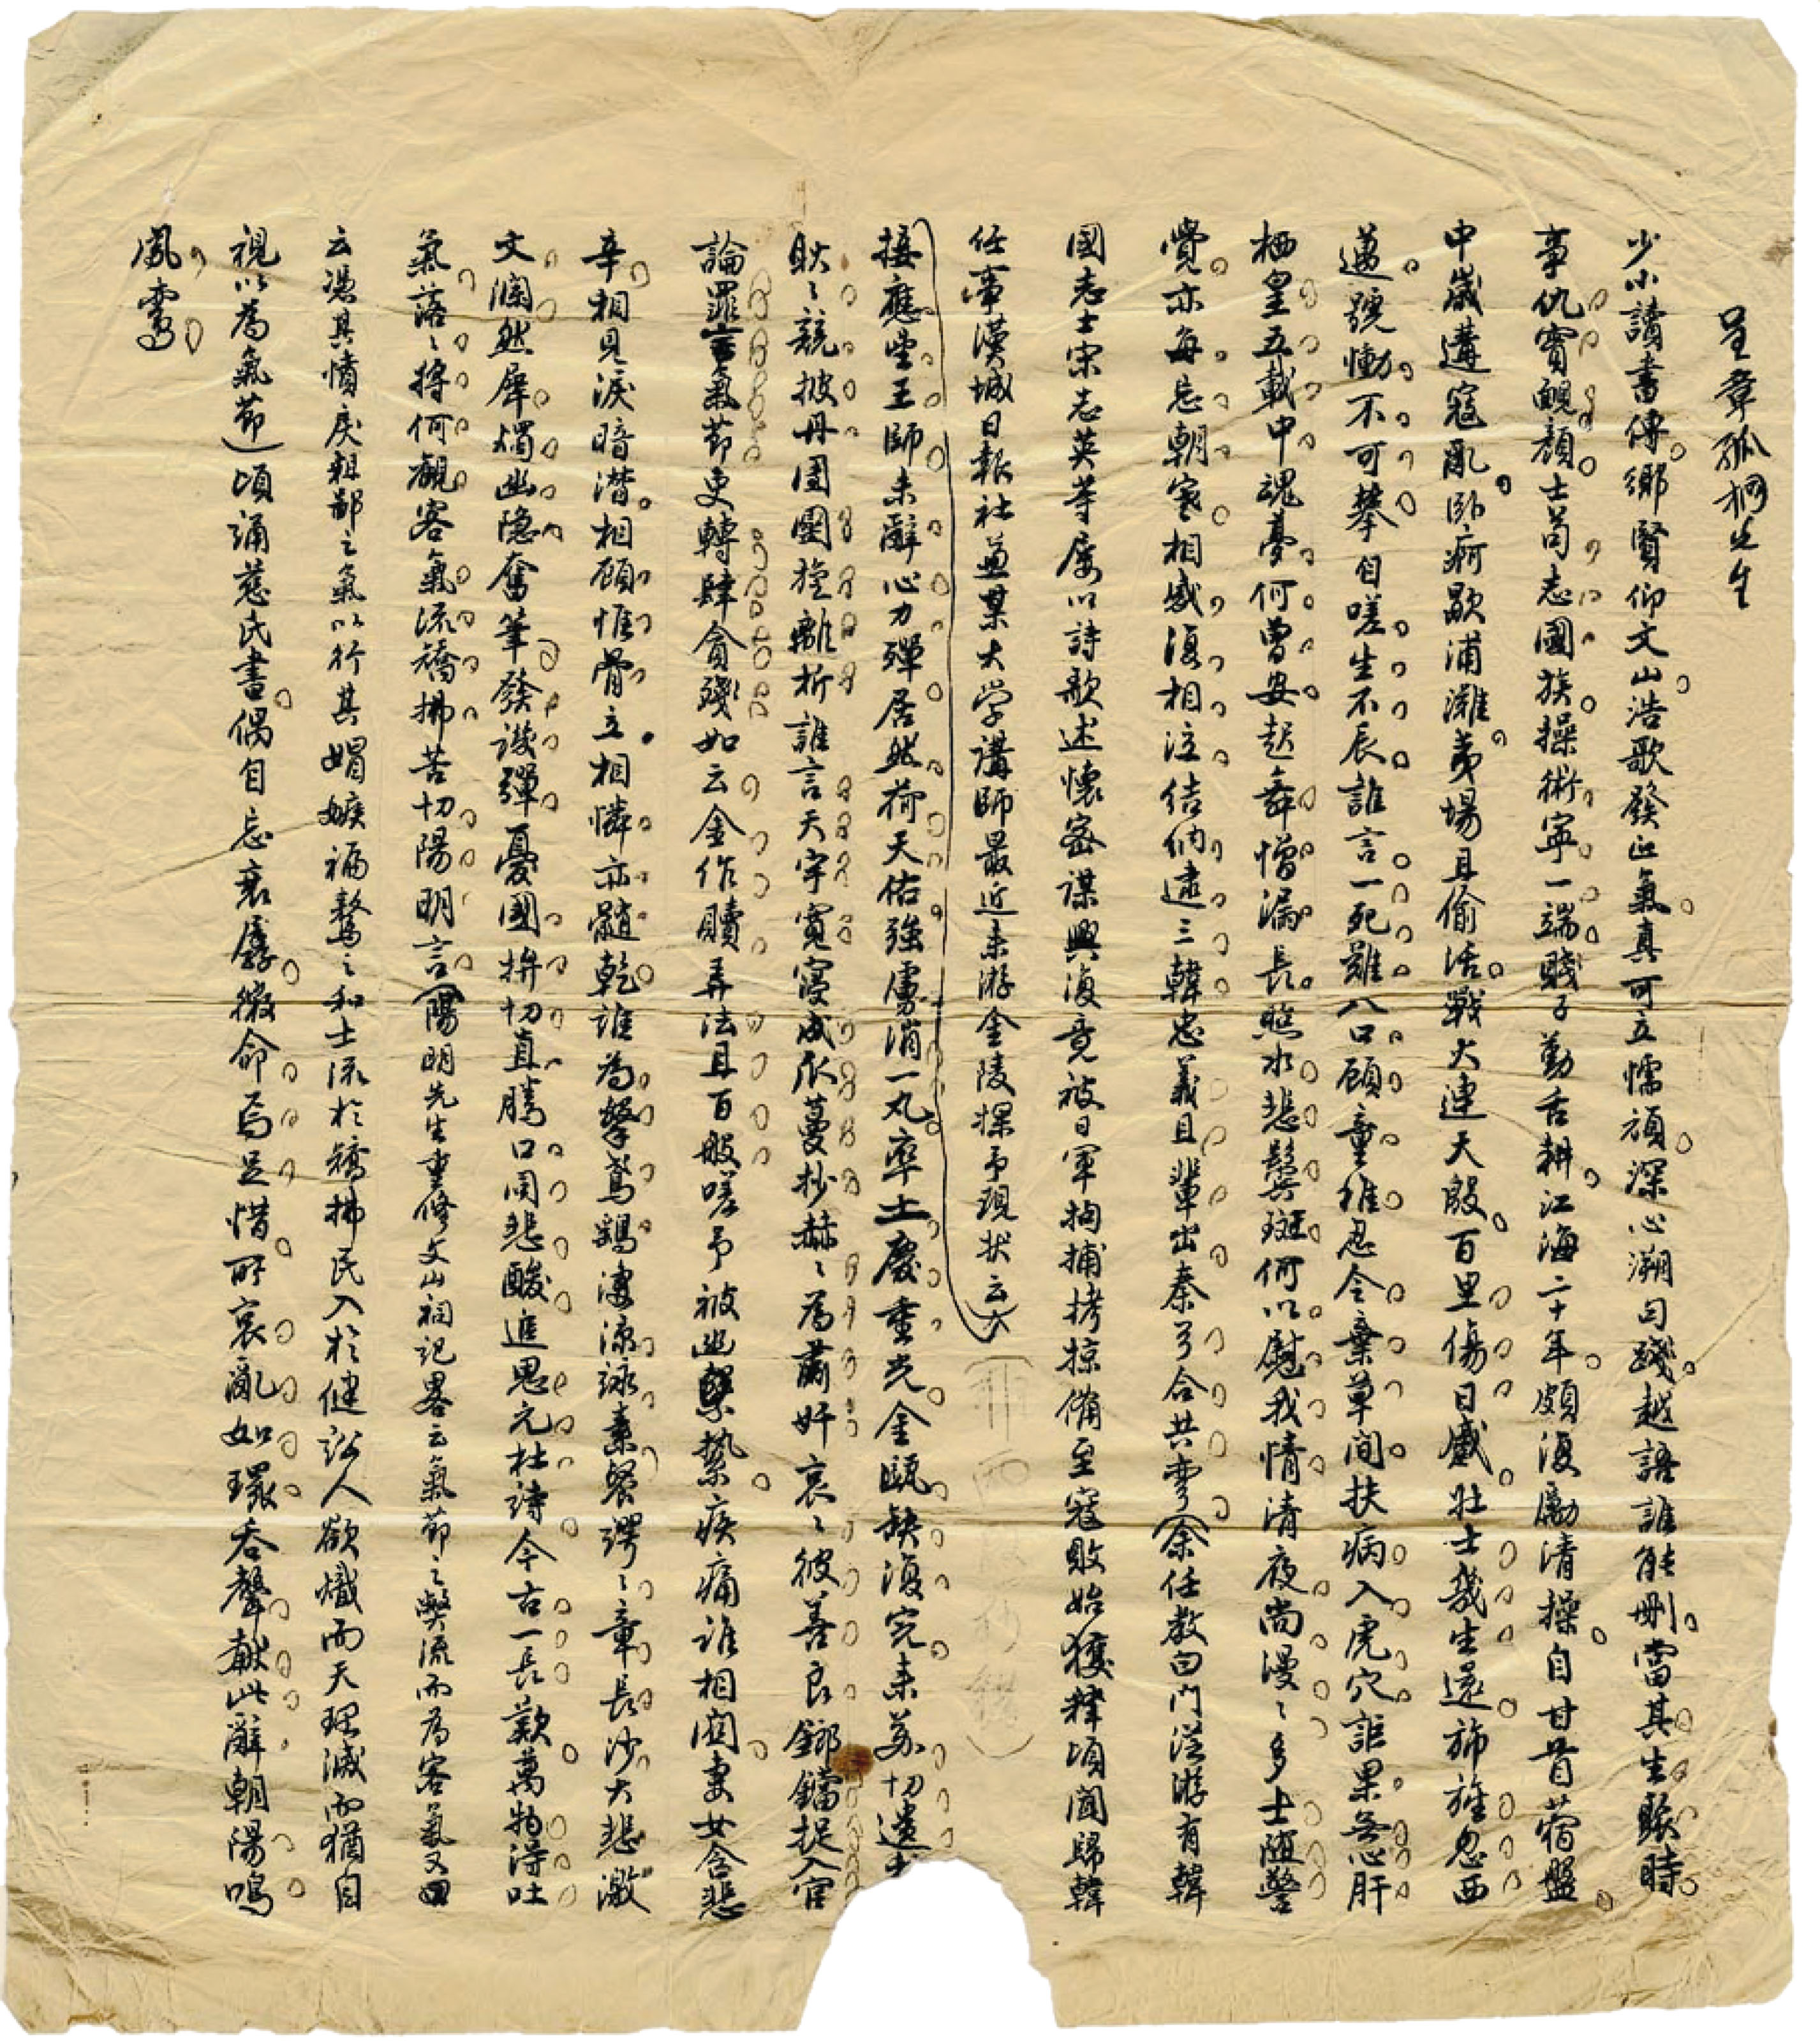 呈章孤桐先生
少小讀書傳鄉賢仰文山浩歌發正氣真可立懦頑深心溯曰踐越語誰能刪當其生聚時
事仇實靦顏士苟志國族操術寧一端賤子勤舌耕江海二十年頗復勵清操自甘苜蓿盤
中歲遘寇亂臥疴歇浦灘夢場且偷活戰火連天殷百里傷日蹙壯士幾生還旆旌忽西
邁號慟不可攀自嗟生不辰誰言一死難八口顧童稚忍令棄草間扶病入虎穴詎果無心肝
栖皇五載中魂夢何曾安起舞憎漏長照水悲鬢斑何以慰我情清夜尚漫漫多士隨警
覺亦每忘朝寒相感復相泣結納逮三韓忠義且輩出秦弓合共彎(余任教白門從游有韓
國志士宋志英等屢以詩歌述懷密謀興復竟被日軍拘捕拷掠備至寇敗始獲釋頃聞歸韓
任事漢城日報社並某大学講師最近来游金陵探予現状云)
接應望王師未辭心力殫居然荷天佑強虜消一丸率土慶重光金甌缺復完来蘇切遺
眈眈競披丹團圞旋離析誰言天宇寬寖成瓜蔓抄赫赫為肅奸哀哀彼善良鋃鐺捉入官
論罪言氣節更轉肆貪殘如云金作贖弄法且百般嗟予被幽縶疾痛誰相關妻女含悲
辛相見淚暗潸相顧惟骨立相憐亦髓乾誰為拏鳶鷂淒涼詠素餐諤諤章長沙大悲激
文瀾然犀燭幽隱奮筆發譏彈憂國拚切直騰口同悲酸追思元杜詩今古一長歎萬物得吐
氣落落將何觀客氣流矯拂苦切陽明言(陽明先生重修文山祠記畧云氣節之弊流而為客氣又曰
云憑其憤戾粗鄙之氣以行其媢嫉褊驁之私士流於矯拂民入於健訟人欲熾而天理滅而猶自
視以為氣節)頃誦慈氏書偶自忘衰孱微命烏足惜所哀亂如環吞聲獻此辭朝陽鳴
鳳鸞